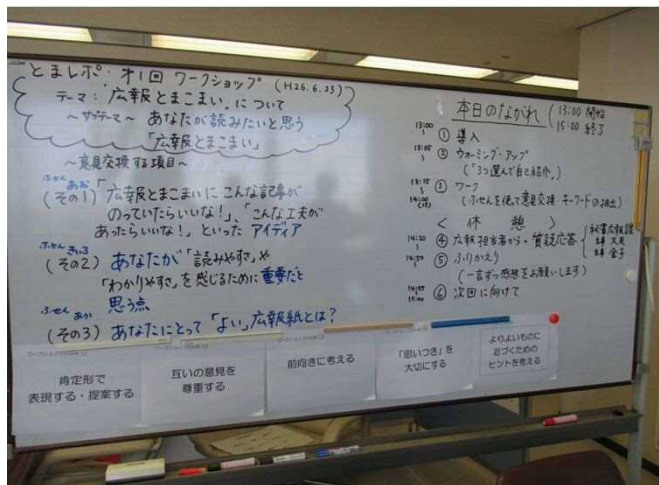 とまレポ・オ1回 ワークショップ (H26.6.23)
テーマ:「広報とまこまい」について
～サブテーマ～ あなたが読みたいと思う
「広報とまこまい」
～意見交換する項目～
ふせん あお
(その1)「広報とまこまいに こんな記事が
のっていたらいいな!」、「こんな工夫が
あったらいいな!」といった アイディア
ふせん きいろ
(その2) あなたが「読みやすさ」や
「わかりやすさ」を感じるために重要だと
思う点
ふせん あか
(その3) あなたにとって「よい」広報紙とは?
本日のながれ (13:00 開始
15:00 終了
13:00 ① 導入
13:05 ② ウォーミング・アップ
(「3つ選んで自己紹介」)
13:15 ③ ワーク
14:00 (ふせんを使って意見交換・キーワードの抽出)
＜ 休 憩 ＞
14:20 ④ 広報担当者から・質疑応答 秘書広報課
主事
主事 金子
14:50 ⑤ ふりかえり
(一言ずつ感想をお願いします)
14:55 ⑥ 次回に向けて
15:00
肯定形で
表現する・提案する
互いの意見を
尊重する
前向きに考える
「思いつき」を
大切にする
よりよいものに
近づくための
ヒントを考える